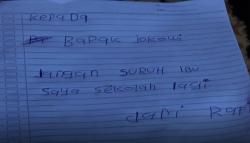 kepada
Bapak Jokowi
Jangan SURUH IBU
saya sekolah lagi
dari